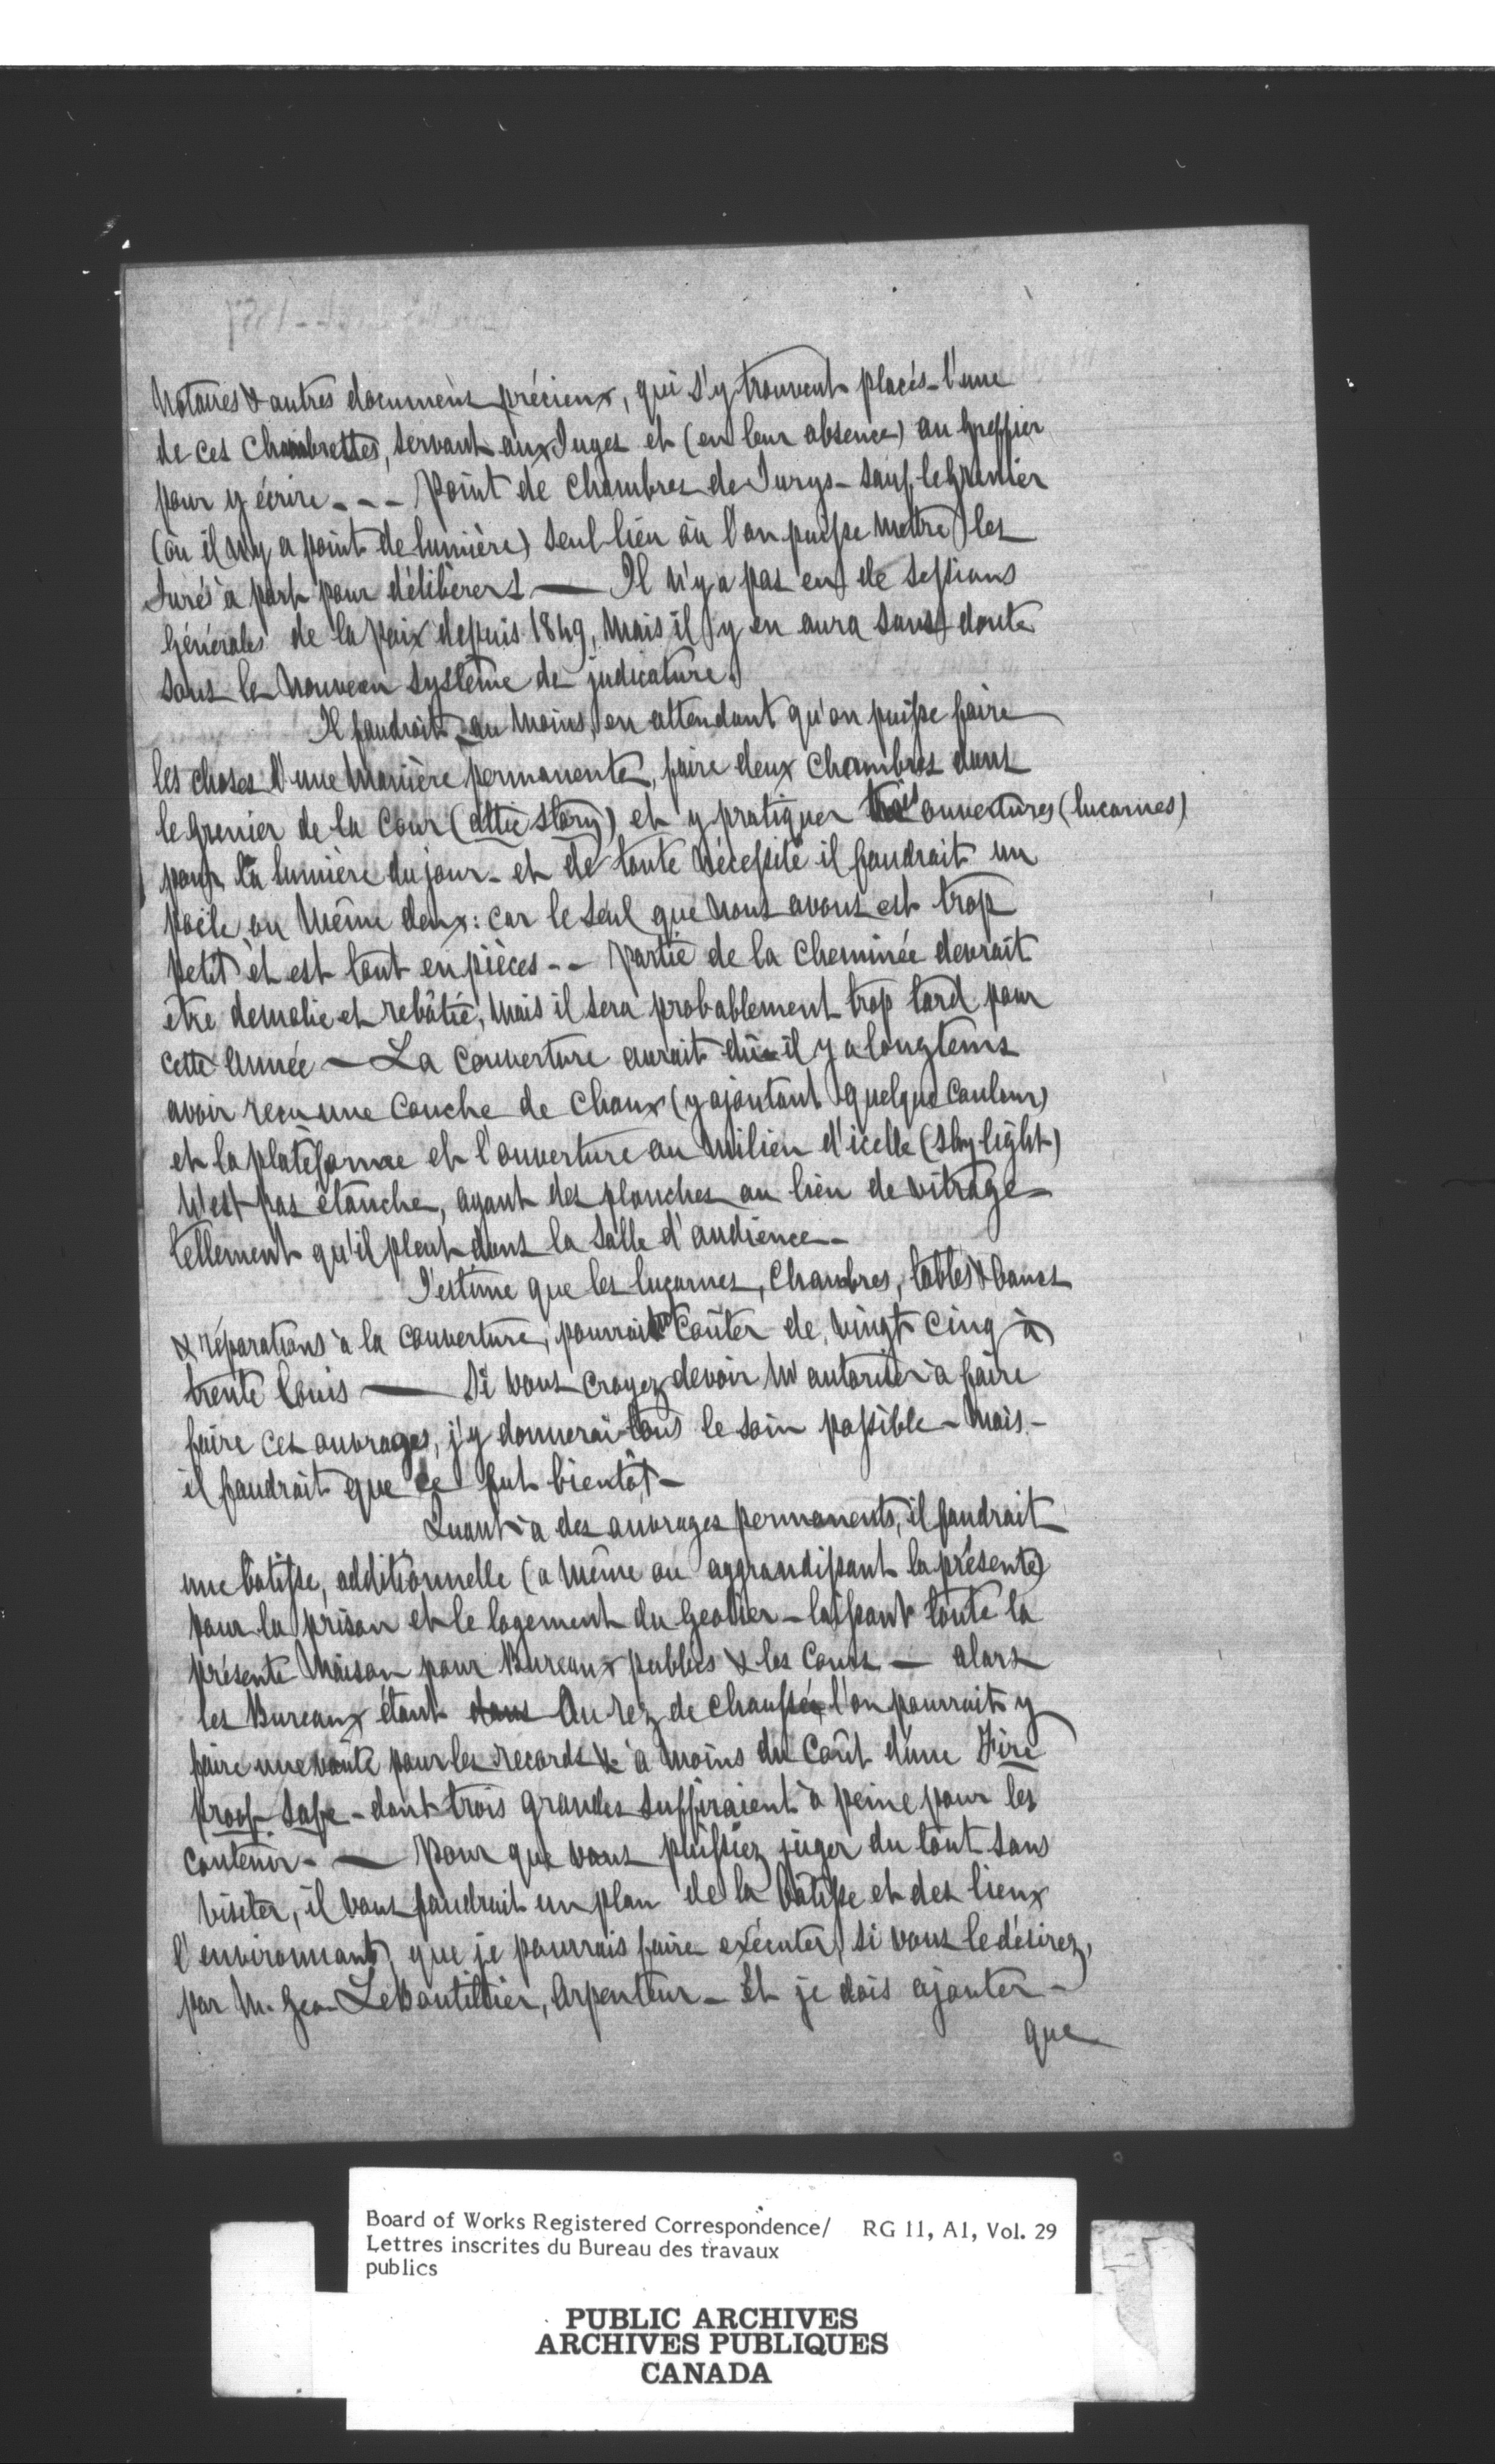 Notaires & autres documens précieux, qui s'y trouvent placés - l'une
de ces Chambrettes, servant aux Juges et (en leur absence) au Greffier
pour y écrire - - - Point de Chambres de Jurys - sauf le Grenier
(où il n'y a point de lumière) seul lieu où l'on puisse mettre les
Jurés à part pour délibérer! — Il n'y a pas eu de Sessions
Générales de la Paix depuis 1849, mais il y en aura sans doute
sous le nouveau système de judicature.
Il faudroit au moins, en attendant qu'on puisse faire
les choses d'une manière permanente, faire deux Chambres dans
le Grenier de la Cour (attic story) et y pratiquer trois ouvertures (lucarnes)
pour la lumière du jour - et de toute nécessité il faudrait un
Poële ou même deux: car le seul que nous avons est trop
petit et est tout en pièces - - Partie de la Cheminée devrait
etre demolie et rebâtie, mais il sera probablement trop tard pour
cette année — La Couverture aurait dû il y a longtems
avoir reçu une Couche de Chaux (y ajoutant quelque Couleur)
et la plateforme et l'ouverture au milieu d'icelle (sky light)
n'est pas étanche, ayant des planches au lieu de vitrage -
tellement qu'il pleut dans la Salle d'audience -
J'estime que les lucarnes, Chambres, tables & bancs
& réparations à la Couverture, pourraient Coûter de vingt cinq à
trente Louis — Si vous croyez devoir m'autoriser à faire
faire ces ouvrages, j'y donnerai tous le soin possible - Mais -
il faudrait que ce fut bientôt -
Quant à des ouvrages permanents, il faudrait
une batisse, additionnelle (a même ou aggrandissant la présente)
pour la prison et le logement du Geolier - laissant toute la
présente Maison pour Bureaux publics & les Cours — alors
les Bureaux étant dans Au rez de chaussée l'on pourrait y
faire une voute pour les records &c à moins du Coût d'une Fire
proof Safe - dont trois grandes suffiraient à peine pour les
contenir - — Pour que vous puissiez juger du tout sans
visiter, il vous faudrait un plan de la batisse et des lieux
l'environnant, que je pourrais faire exécuter, si vous le désirez,
par M. Geo. LeBoutillier, Arpenteur - Et je dois ajouter -
que
Board of Works Registered Correspondence/ RG 11, A1, Vol. 29
Lettres inscrites du Bureau des travaux
publics
PUBLIC ARCHIVES
ARCHIVES PUBLIQUES
CANADA